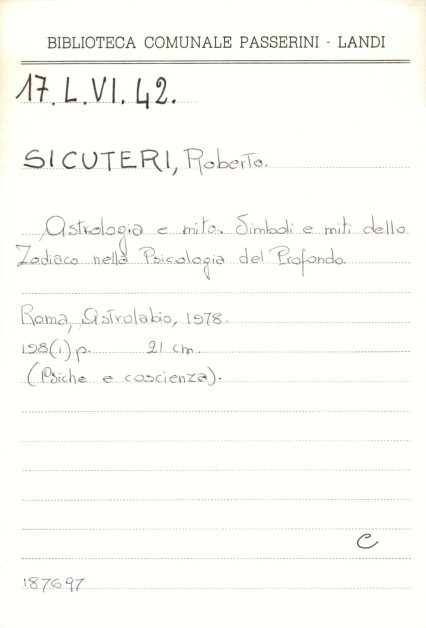 BIBLIOTECA COMUNALE PASSERINI - LANDI
17.L.VI.42.
SICUTERI, Roberto.
Astrologia e mito. Simboli e miti dello
Zodiaco nella Psicologia del Profondo.
Roma, Astrolabio, 1978.
198(1) p. 21 cm.
(Psiche e coscienza).
C
187697